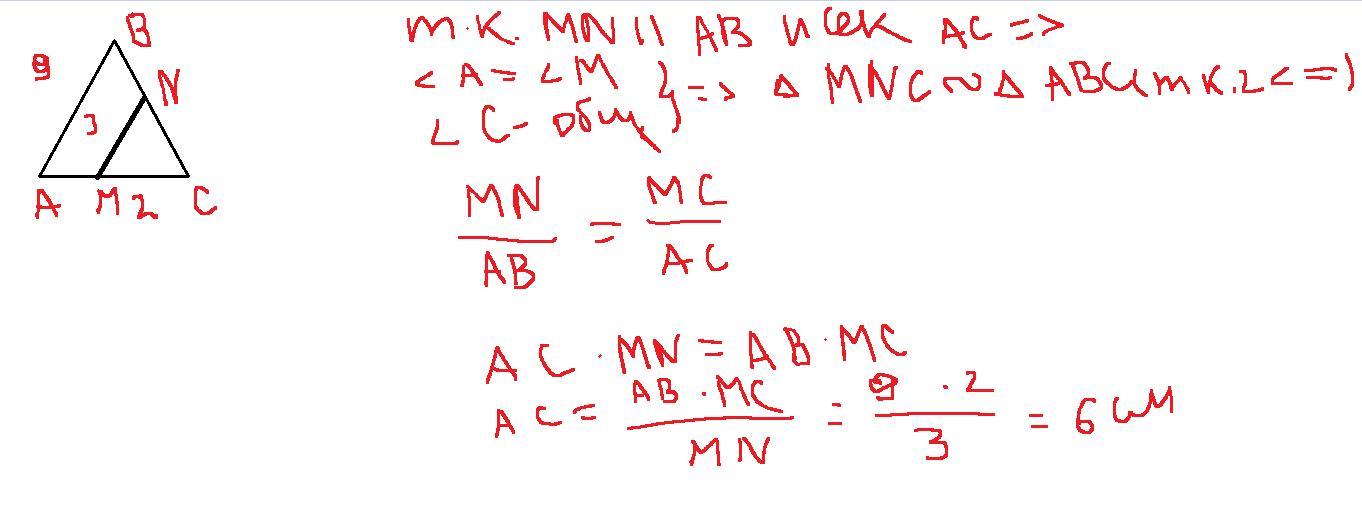 B
9
N
3
A M 2 C
т.к. MN || AB и сек AC =>
∠ A = ∠ M
∠ C - общ } => Δ MNC ~ Δ ABC (т.к. 2 ∠ =)
MN / AB = MC / AC
AC · MN = AB · MC
AC = AB · MC / MN = 9 · 2 / 3 = 6 см